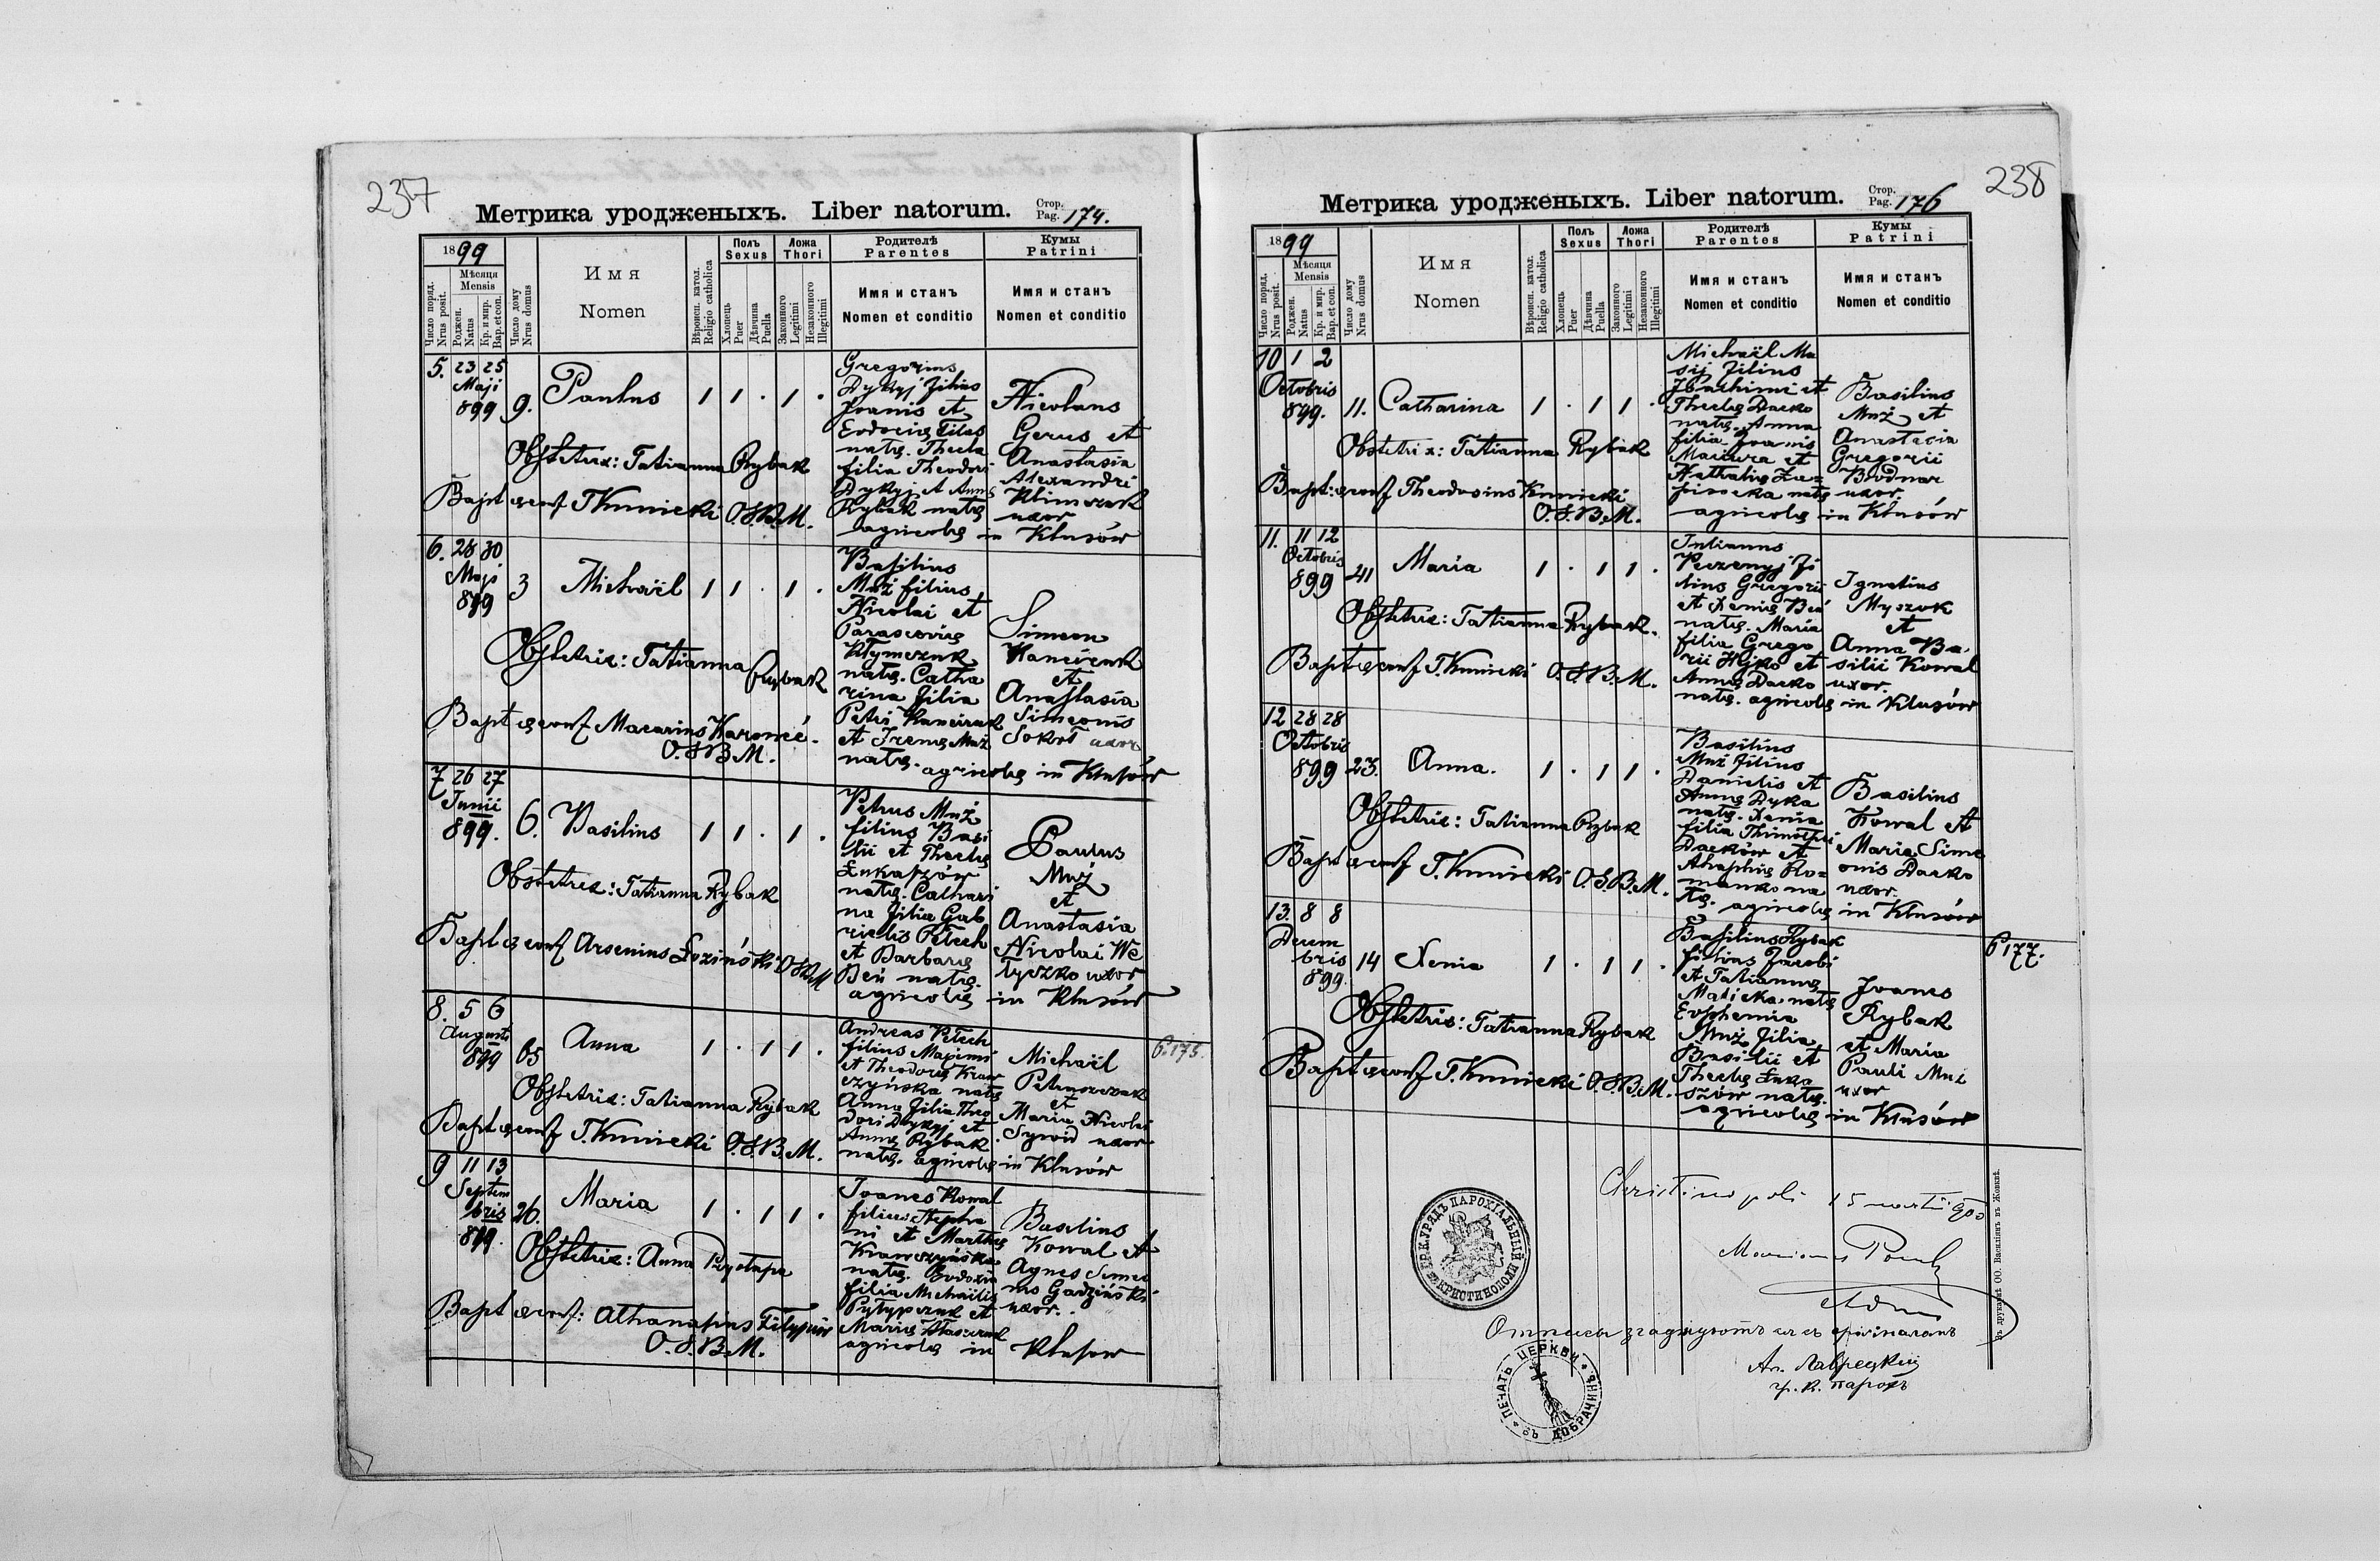 237
Метрика уродженыхъ. Liber natorum. Стор. Pag. 174.
1899
Число поряд. Nrus posit.
Мѣсяця Mensis
Роджен. Natus
Кр. и мир. Bap. et con.
Число дому Nrus domus
Имя Nomen
Вѣроисп. катол. Religio catholica
Полъ Sexus
Хлопець Puer
Дѣвчина Puella
Ложа Thori
Законного Legitimi
Незаконного Illegitimi
Родителѣ Parentes
Имя и станъ Nomen et conditio
Кумы Patrini
Имя и станъ Nomen et conditio
5. 23 25
Maji
899 9. Paulus 1 1 . 1 .
Obstetrix: Tatianna Rybak
Bapt et conf T Kunicki O.S.B.M.
Gregorius
Dykyj filius
Joanis et
Eudocię Tilas
natę. Thecla
filia Theodori
Dykyj et Annę
Rybak natę
agricolę in Kłusów
Nicolaus
Gerus et
Anastasia
Alexandri
Klimczuk
uxor
6. 28 30
Maji
899 3 Michaël 1 1 . 1 .
Obstetrix: Tatianna Rybak
Bapt et conf Macarius Karowić.
O.S.B.M.
Basilius
Muź filius
Nicolai et
Parascevię
Klymczuk
natę. Catha
rina filia
Petri Hanciruk
et Irenę Muź
natę. agricolę in Kłusów
Simeon
Hanciruk
et
Anastasia
Simeonis
Sokoł uxor
7 26 27
Junii
899. 6. Basilius 1 1 . 1 .
Obstetrix: Tatianna Rybak
Bapt et conf Arsenius Łoziński OSBM
Petrus Muź
filius Basi
lii et Theclę
Łukaszów
natę. Cathari
na filia Gab
rielis Petech
et Barbarę
Deń natę.
agricolę in Kłusów
Paulus
Muź
et
Anastasia
Nicolai We
łyczko uxor
8. 5 6
Augusti
899 65 Anna 1 . 1 1 .
Obstetrix: Tatianna Rybak
Bapt et conf T. Kunicki O.S.B.M.
Andreas Petech
filius Maximi
et Theodorę Kraw
czyńska natę
Anna filia Theo
dori Dykyj et
Annę Rybak
natę. agricolę in Kłusów
Michaël
et
Maria Nicolai
uxor
P. 175.
9 11 13
Septem
bris
899. 26. Maria 1 . 1 1 .
Obstetrix: Anna Prystupa
Bapt et conf: Athanasius
O.S.B.M.
Joanes Kowal
filius Stepha
ni et Marthę
Krawczyńska
natę. Eudoxia
filia Michaëlis
Pytypczuk et
Marię
agricolę in Kłusów
Basilius
Kowal et
Agnes Simeo
nis Gadziński
uxor.
238
Метрика уродженыхъ. Liber natorum. Стор. Pag. 176
1899
Число поряд. Nrus posit.
Мѣсяця Mensis
Роджен. Natus
Кр. и мир. Bap. et con.
Число дому Nrus domus
Имя Nomen
Вѣроисп. катол. Religio catholica
Полъ Sexus
Хлопець Puer
Дѣвчина Puella
Ложа Thori
Законного Legitimi
Незаконного Illegitimi
Родителѣ Parentes
Имя и станъ Nomen et conditio
Кумы Patrini
Имя и станъ Nomen et conditio
10 1 2
Octobris
899. 11. Catharina 1 . 1 1 .
Obstetrix: Tatianna Rybak
Bapt: et conf Theodosius Kunicki
O.S.B.M.
Michaël Ma
sij filius
Joachimi et
Theclę Dacko
natę. Anna
filia Joanis
Maciura et
Nathalię
natę
agricolę in Kłusów
Basilius
Muź et
Anastasia
Gregorii
Bodnar
uxor.
11. 11 12
Octobris
899 41 Maria 1 . 1 1 .
Obstetrix: Tatianna Rybak.
Bapt et conf T. Kunicki O.S.B.M.
Julianus
Peczenyj fi
lius Gregorii
et Xenię
natę. Maria
filia Grego
rii Hejko et
Annę Dacko
natę. agricolę in Kłusów
Ignatius
Myszok
et
Anna Ba
silii Kowal
uxor.
12 28 28
Octobris
899 23. Anna. 1 . 1 1 .
Obstetrix: Tatianna Rybak
Bapt et conf T. Kunicki O.S.B.M.
Basilius
Muź filius
Danielis et
Annę Dyka
natę. Xenia
filia Thimothei
Dacków et
Ahaphię Ro=
manko na
tę. agricolę in Kłusów
Basilius
Kowal et
Maria Sime
onis Dacko
uxor.
13. 8 8
Decem
bris
899. 14 Xenia 1 . 1 1 .
Obstetrix: Tatianna Rybak
Bapt et conf T. Kunicki O.S.B.M.
Basilius Rybak
filius Jacobi
et Tatiannę
Maticka natę
Euphemia
Muź filia
Basilii et
Theclę Łuka
szów natę.
agricolę in Kłusów
Joanes
Rybak
et Maria
Pauli Muź
uxor
P 177.
Christinopoli 15 martii 900
ГР. К. УРЯДЪ ПАРОХІАЛЬНЫЙ ВЪ КРИСТИНОПОЛИ
зъ ориґиналомъ
Ал. Лаврецкій
гр. к. парохъ
ПЕЧАТЬ ЦЕРКВИ ВЪ ДОБРАЧИНѢ
Въ друкарнѣ ОО. Василіянъ въ Жовквѣ.